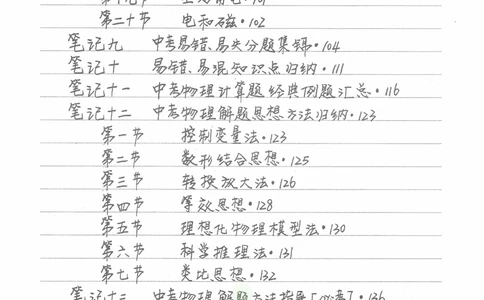 第二十节 电和磁·102
笔记九 中考易错、易失分题集锦·104
笔记十 易错、易混知识点归纳·111
笔记十一 中考物理计算题经典例题汇总·116
笔记十二 中考物理解题思想方法归纳·123
第一节 控制变量法·123
第二节 数形结合思想·125
第三节 转换放大法·126
第四节 等效思想·128
第五节 理想化物理模型法·130
第六节 科学推理法·131
第七节 类比思想·132
笔记十三 中考物理解题方法指导[必看]·136